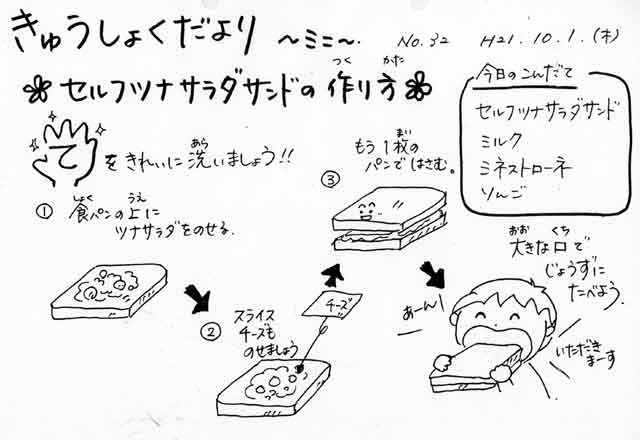 きゅうしょくだより ～ミニ～ No.32 H21.10.1.(木)
セルフツナサラダサンドの作り方
つく かた
今日のこんだて
セルフツナサラダサンド
ミルク
ミネストローネ
りんご
てをきれいに洗いましょう!!
あら
① 食パンの上に
しょく うえ
ツナサラダをのせる.
② スライス
チーズも
のせましょう
チーズ
③ もう1枚の
まい
パンではさむ。
大きな口で
おお くち
じょうずに
たべよう.
あーん!
いただき
まーす